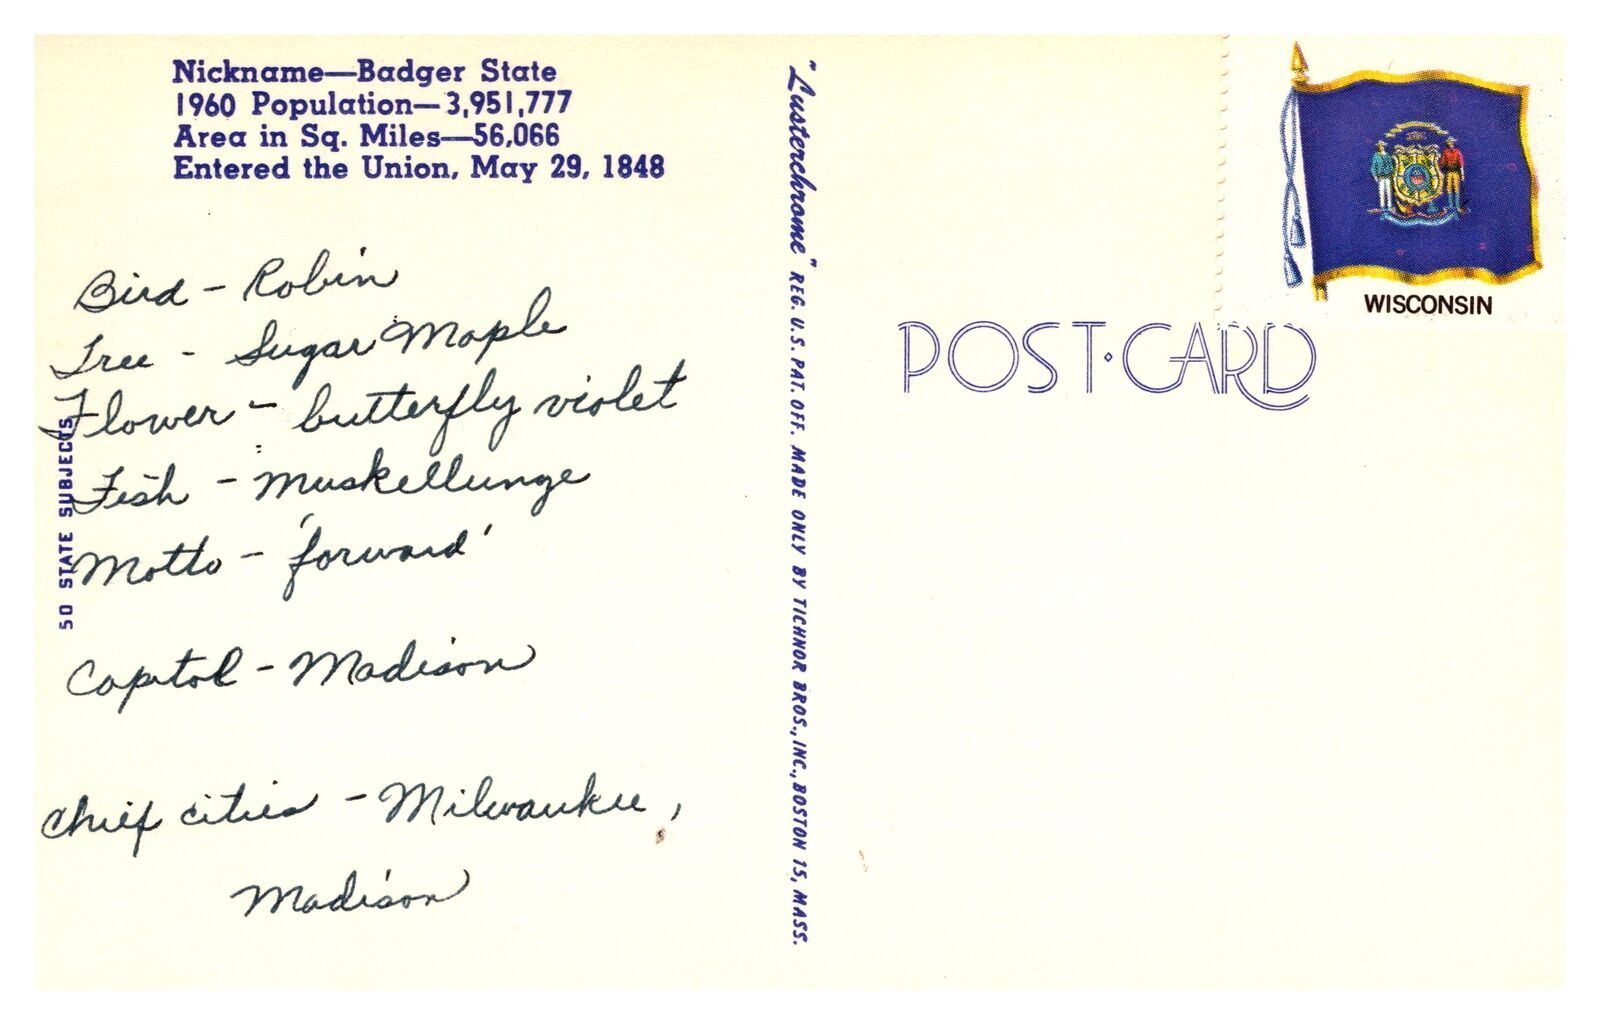 Nickname—Badger State
1960 Population—3,951,777
Area in Sq. Miles—56,066
Entered the Union, May 29, 1848
Bird - Robin
Tree - Sugar Maple
Flower - butterfly violet
Fish - Muskellunge
Motto - 'forward'
Capitol - Madison
Chief cities - Milwaukee,
Madison
50 STATE SUBJECTS
"Lusterchrome" REG. U.S. PAT. OFF. MADE ONLY BY TICHNOR BROS., INC., BOSTON 15, MASS.
POST·CARD
WISCONSIN